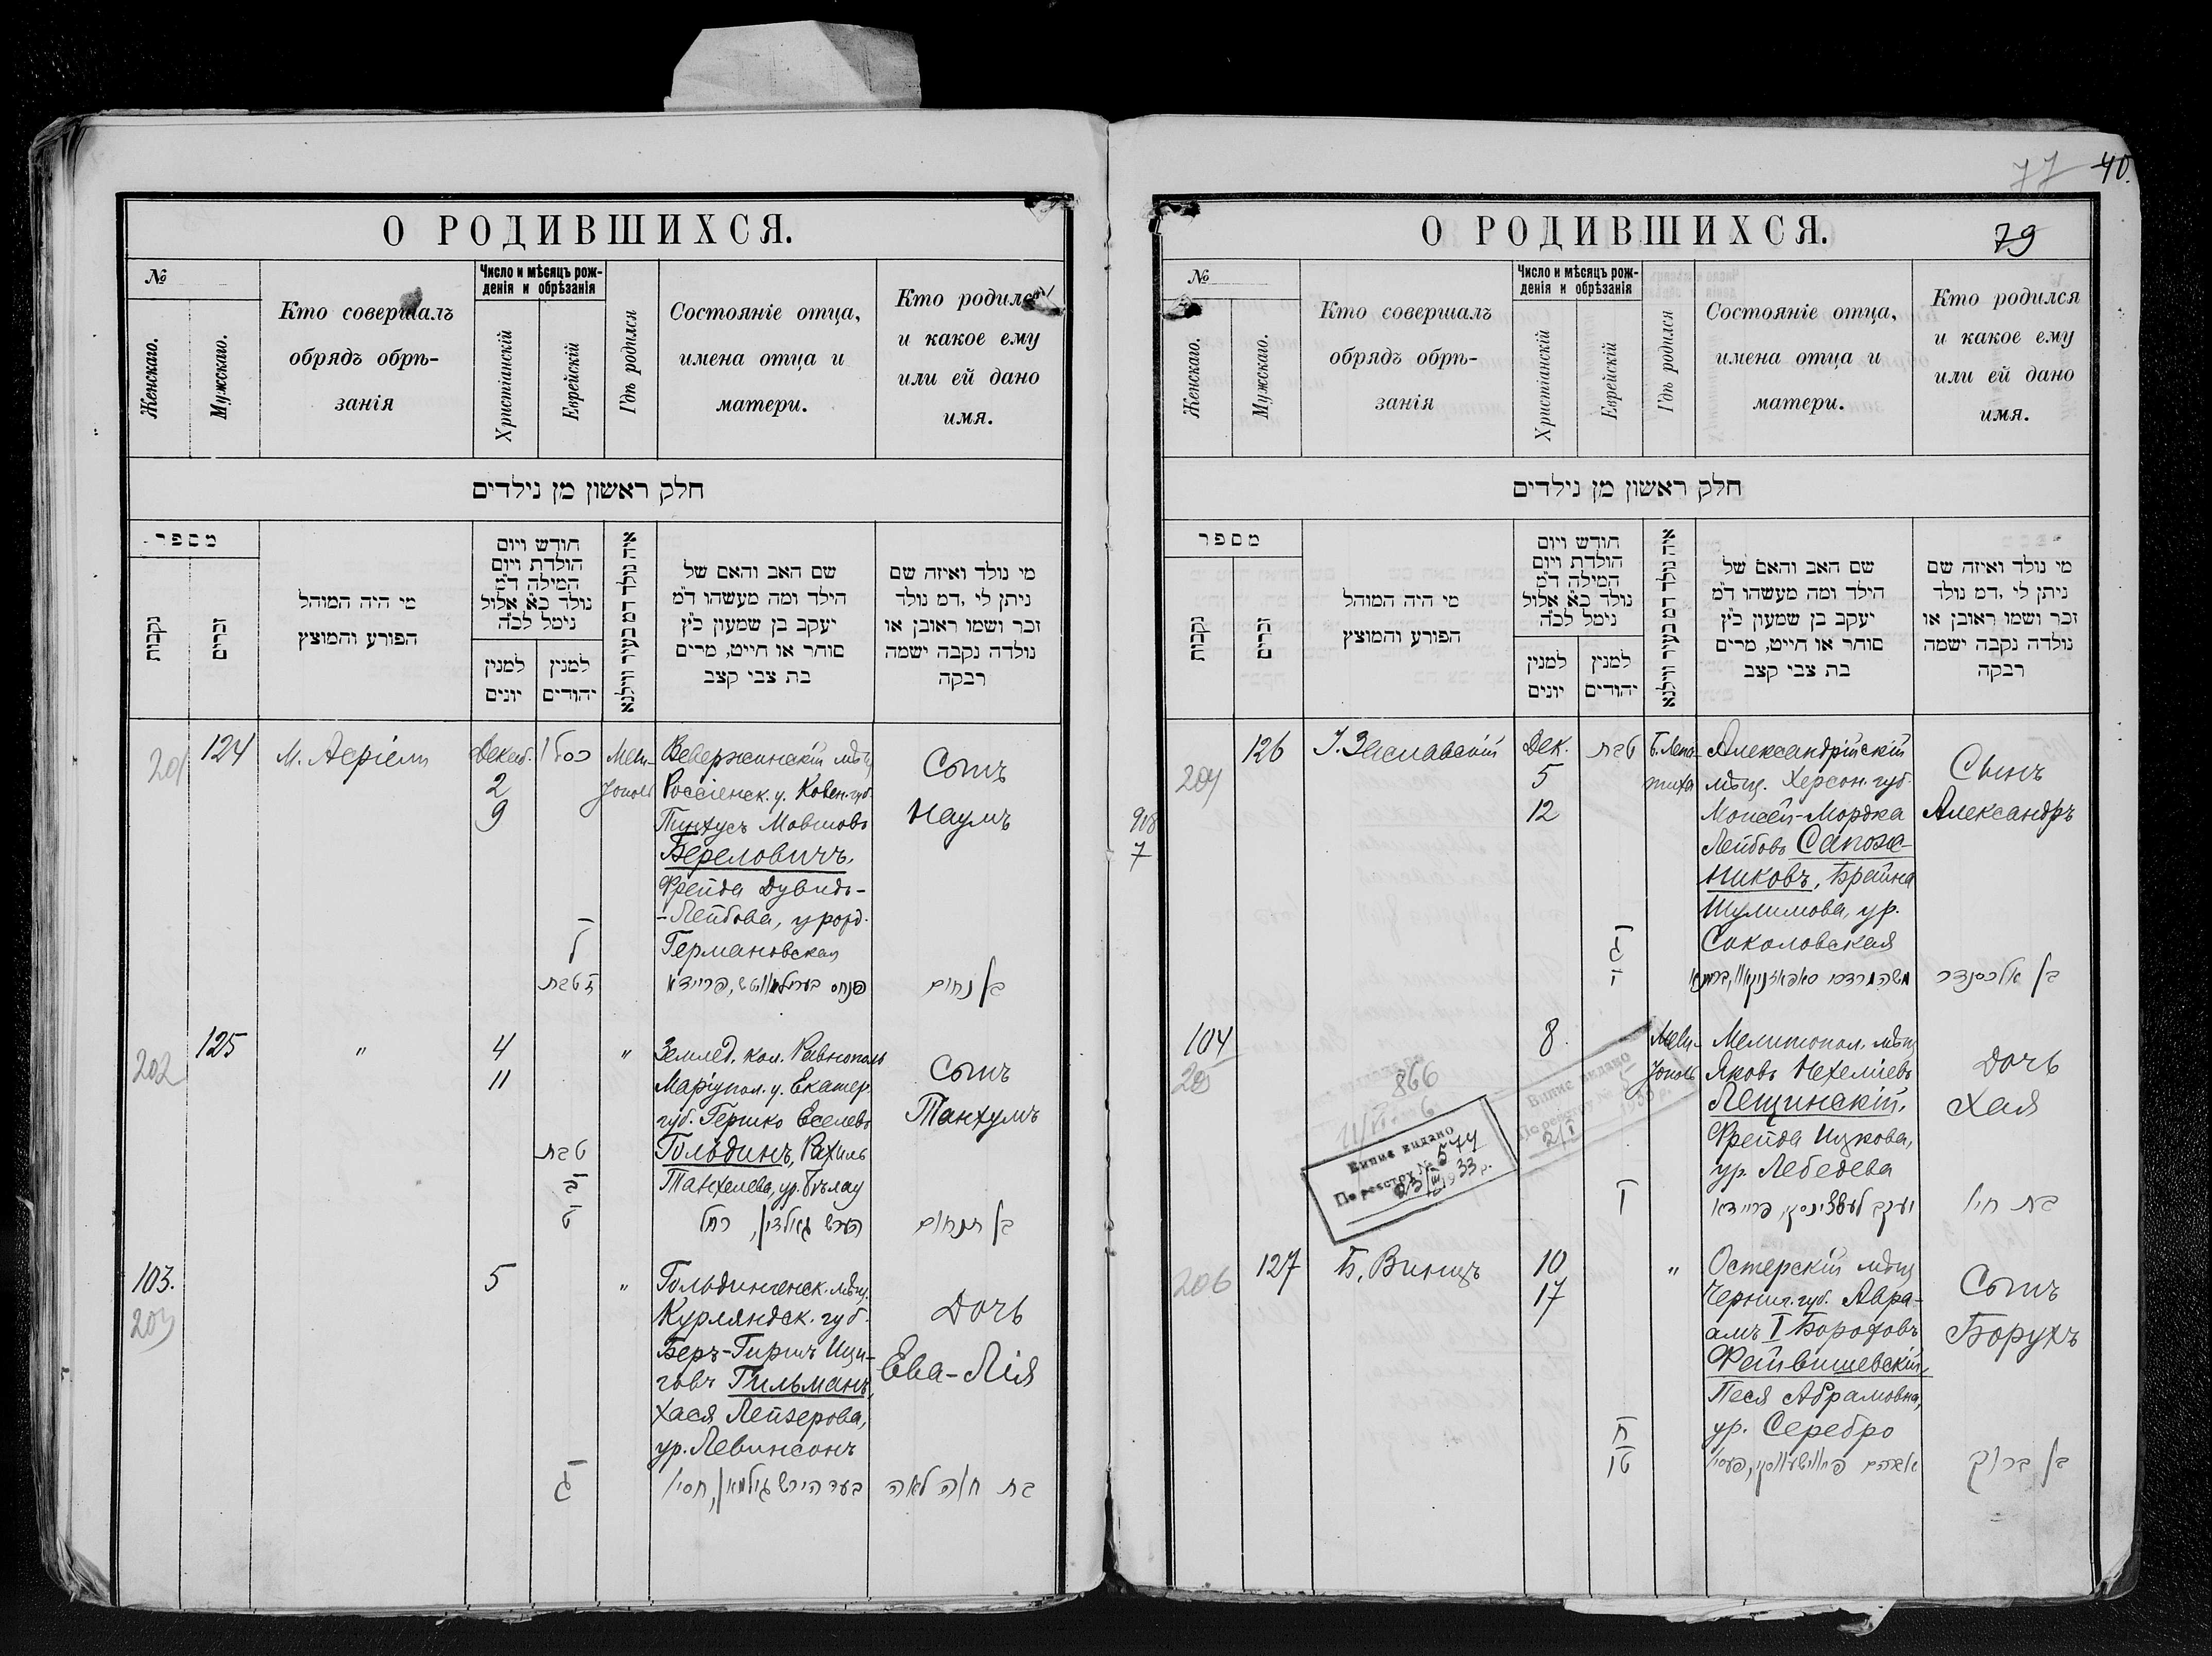 О РОДИВШИХСЯ.
№
Женскаго.
Мужскаго.
Кто совершалъ
обрядъ обрѣ-
занія
Число и мѣсяцъ рож-
денія и обрѣзанія
Христіанскій
Еврейскій
Гдѣ родился
Состояніе отца,
имена отца и
матери.
Кто родился
и какое ему
или ей дано
имя.
חלק ראשון מן נילדים
מספר
נקבות
זכרים
מי היה המוהל
הפורע והמוצץ
חודש ויום
הולדת ויום
המילה ד״מ
נולד כ״א אלול
נימל לכ״ה
למנין
יונים
למנין
יהודים
איה נולד דמ בעיר ווילנא
שם האב והאם של
הילד ומה מעשהו ד״מ
יעקב בן שמעון כ״ץ
סוחר או חייט, מרים
בת צבי קצב
מי נולד ואיזה שם
ניתן לי ,דמ נולד
זכר ושמו ראובן או
נולדה נקבה ישמה
רבקה
201
124
М. Асріелъ
Декаб.
2
9
כסלו
ל
ח טבת
Мели-
тополь
Вевержинскій мѣщ
Россіенск. у. Ковен. губ.
Пинхусъ Мовшовъ
Береловичъ,
Фрейда Дувидъ-
-Лейбова, урожд.
Германовская
פנחס בערילאוויטש, פריידא
Сынъ
Наумъ
בן נחום
202
125
"
4
11
טבת
ב
ט
"
Землед. кол. Равнополь
Маріупол. у. Екатер.
губ. Гершко Еселевъ
Гольдинъ, Рахиль
Танхелева, ур.
הערש גאלדין, רחל
Сынъ
Танхумъ
בן תנחום
103.
203
5
ג
"
Гольдингенск. мѣщ.
Курляндск. губ.
Беръ-Гиршъ Ици-
говъ Гильманъ,
Хася Лейзерова,
ур. Левинсонъ
בער הירש גילמאן, חסיא
Дочь
Ева-Лія
בת חוה לאה
77 40.
О РОДИВШИХСЯ.
79
№
Женскаго.
Мужскаго.
Кто совершалъ
обрядъ обрѣ-
занія
Число и мѣсяцъ рож-
денія и обрѣзанія
Христіанскій
Еврейскій
Гдѣ родился
Состояніе отца,
имена отца и
матери.
Кто родился
и какое ему
или ей дано
имя.
חלק ראשון מן נילדים
מספר
נקבות
זכרים
מי היה המוהל
הפורע והמוצץ
חודש ויום
הולדת ויום
המילה ד״מ
נולד כ״א אלול
נימל לכ״ה
למנין
יונים
למנין
יהודים
איה נולד דמ בעיר ווילנא
שם האב והאם של
הילד ומה מעשהו ד״מ
יעקב בן שמעון כ״ץ
סוחר או חייט, מרים
בת צבי קצב
מי נולד ואיזה שם
ניתן לי ,דמ נולד
זכר ושמו ראובן או
נולדה נקבה ישמה
רבקה
918
7
204
126
І. Заславскій
Дек.
5
12
טבת
ג
Б. Лепа-
тиха
Александрійскій
мѣщ. Херсон. губ.
Моисей-Мордка
Лейбовъ Сапож-
никовъ, Брайна
Шулимова, ур.
Соколовская
Сынъ
Александръ
בן אלכסנדר
104
205
8
Мели-
тополь
Мелитопол. мѣщ
Яковъ Нехеміевъ
Лещинскій,
Фрейда Ицкова,
ур. Лебедева
יעקב לעשצינסקי, פריידא
Дочь
Хая
בת חיא
866
Випис видано
По реєстру № 544
23/III 1933 р.
Випис видано
По реєстру № 5
2/I 1930 р.
206
127
Б. Винцъ
10
17
ח
טו
"
Остерскій мѣщ
Черниг. губ. Авра-
амъ I Бороховъ
Файвишевскій,
Песя Абрамовна,
ур. Серебро
Сынъ
Борухъ
בן ברוך